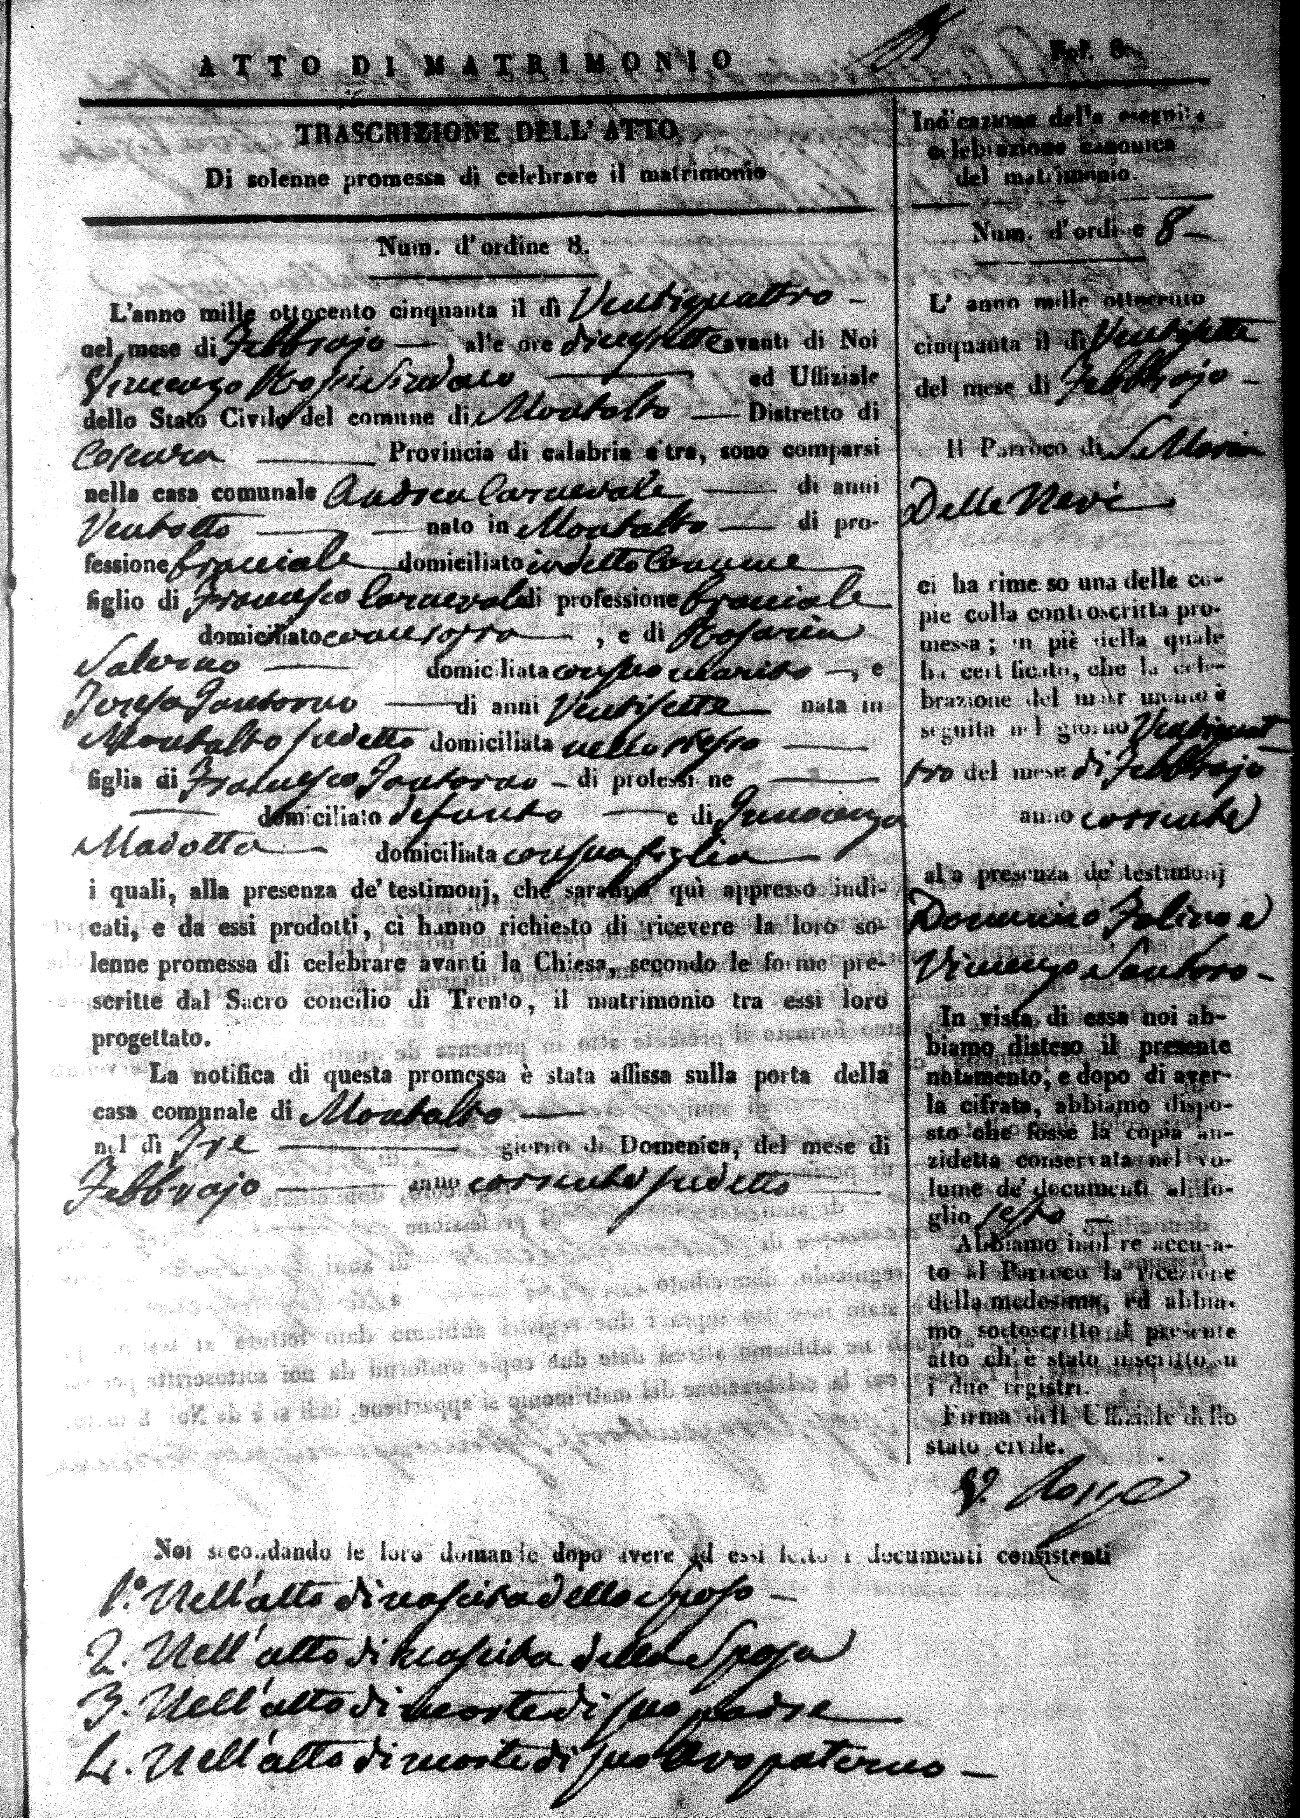 ATTO DI MATRIMONIO
Fol. 8
TRASCRIZIONE DELL'ATTO
Di solenne promessa di celebrare il matrimonio
Num. d'ordine 8.
L'anno mille ottocento cinquanta il dì Ventiquattro
nel mese di Febbrajo alle ore diecisette avanti di Noi
Vincenzo Rossi Sindaco ed Uffiziale
dello Stato Civile del comune di Montalto Distretto di
Cosenza Provincia di calabria citra, sono comparsi
nella casa comunale Andrea Carnevale di anni
Ventotto nato in Montalto di pro-
fessione bracciale domiciliato in detto Comune
figlio di Francesco Carnevale di professione bracciale
domiciliato come sopra, e di Rosaria
Salerno domiciliata con suo marito, e
Teresa Santoro di anni Ventisette nata in
Montalto sudetto domiciliata nello stesso
figlia di Francesco Santoro di professione
domiciliato defunto e di Innocenza
Madotta domiciliata con sua figlia
i quali, alla presenza de' testimonj, che saranno quì appresso indi-
cati, e da essi prodotti, ci hanno richiesto di ricevere la loro so-
lenne promessa di celebrare avanti la Chiesa, secondo le forme pre-
scritte dal Sacro concilio di Trento, il matrimonio tra essi loro
progettato.
La notifica di questa promessa è stata affissa sulla porta della
casa comunale di Montalto
nel dì Tre giorno di Domenica, del mese di
Febbrajo anno corrente sudetto
Indicazione della seguita
celebrazione canonica
del matrimonio.
Num. d'ordine 8
L'anno mille ottocento
cinquanta il dì Ventisette
del mese di Febbrajo
Il Parroco di S. Maria
Delle Nevi
ci ha rimesso una delle co-
pie colla controscritta pro-
messa; in piè della quale
ha certificato, che la cele-
brazione del matrimonio è
seguita nel giorno Ventiquat-
tro del mese di Febbrajo
anno corrente
alla presenza de' testimonj
Domenico Folino e
Vincenzo Santoro
In vista di essa noi ab-
biamo disteso il presente
notamento, e dopo di aver-
la cifrata, abbiamo dispo-
sto che fosse la copia an-
zidetta conservata nel vo-
lume de' documenti al fo-
glio sesto
Abbiamo inoltre accusa-
to al Parroco la ricezione
della medesima, ed abbia-
mo sottoscritto il presente
atto ch'è stato inscritto su
i due registri.
Firma dell'Uffiziale dello
stato civile.
V. Rossi
Noi secondando le loro domande dopo avere ad essi letto i documenti consistenti
1.° Nell'atto di nascita dello Sposo
2. Nell'atto di nascita della Sposa
3. Nell'atto di morte di suo padre
4. Nell'atto di morte di suo Avo paterno